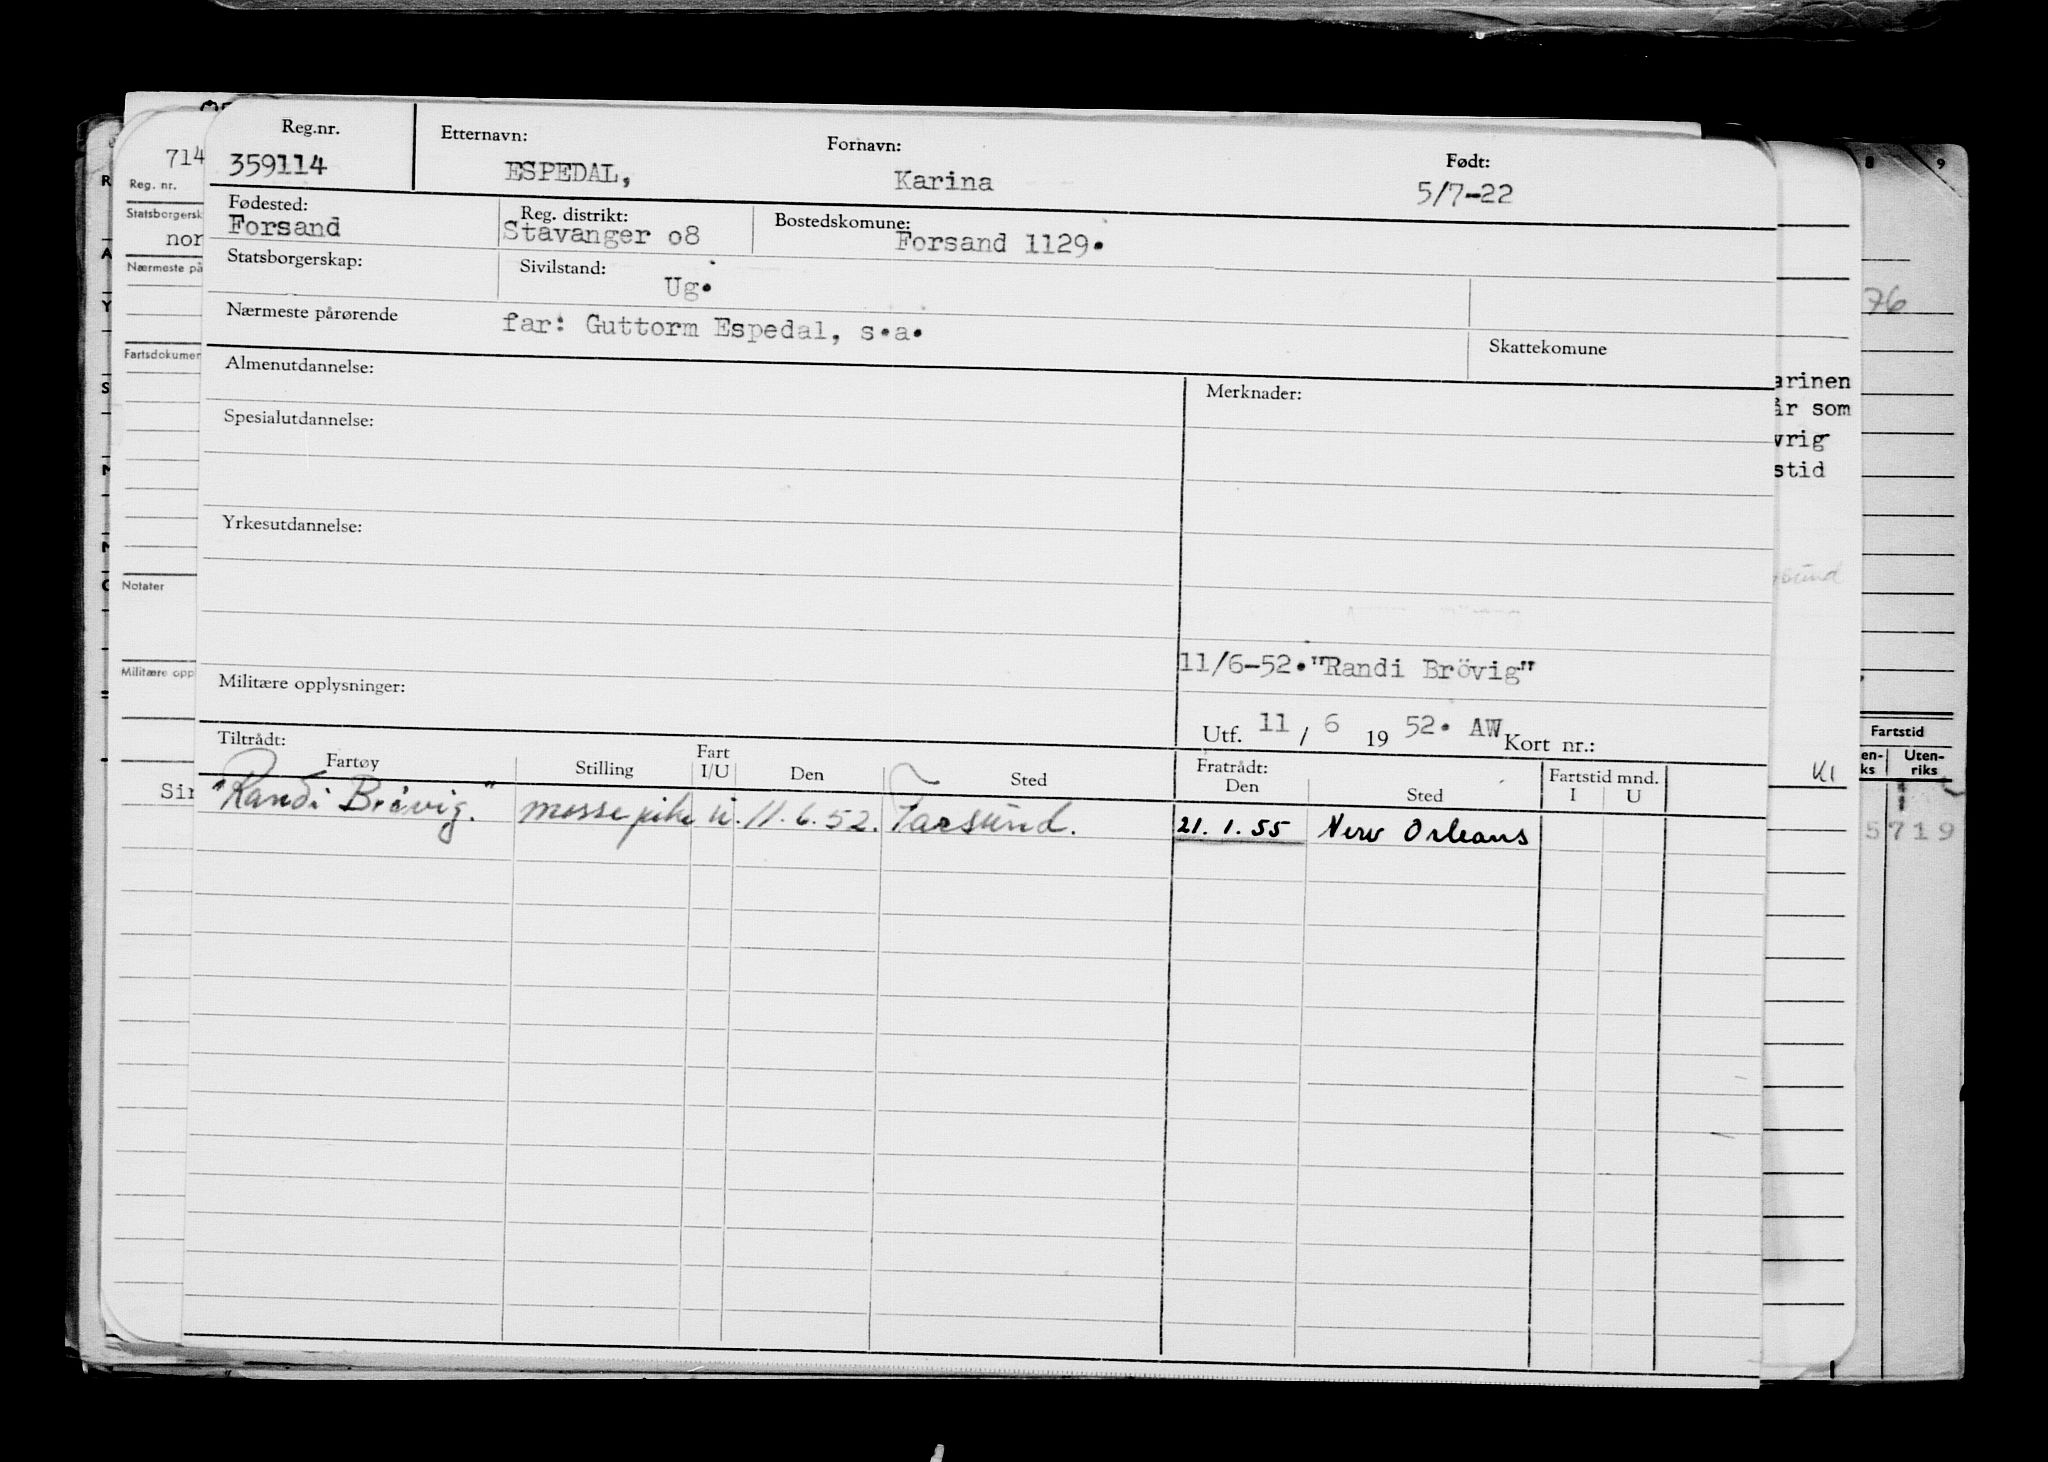 Reg.nr. Etternavn: Fornavn: Født:
359114 ESPEDAL, Karina 5/7-22
Fødested: Reg. distrikt: Bostedskomune:
Forsand Stavanger o8 Forsand 1129.
Statsborgerskap: Sivilstand: Ug.
Nærmeste pårørende far: Guttorm Espedal, s.a.
Skattekomune
Almenutdannelse: Merknader:
Spesialutdannelse:
Yrkesutdannelse:
11/6-52."Randi Brövig"
Militære opplysninger:
Utf. 11 / 6 19 52. AW Kort nr.:
Tiltrådt: Fart Fratrådt: Fartstid mnd.
Fartøy Stilling I/U Den Sted Den Sted I U
"Randi Brövig." messepike u. 11.6.52. Farsund. 21.1.55 New Orleans
714
Reg. nr.
Statsborgersk
nor
Nærmeste på
Fartsdokumen
Notater
Militære opp
Sir
9
76
arinen
år som
vrig
stid
Fartstid
en-
ks
Uten-
riks
5719